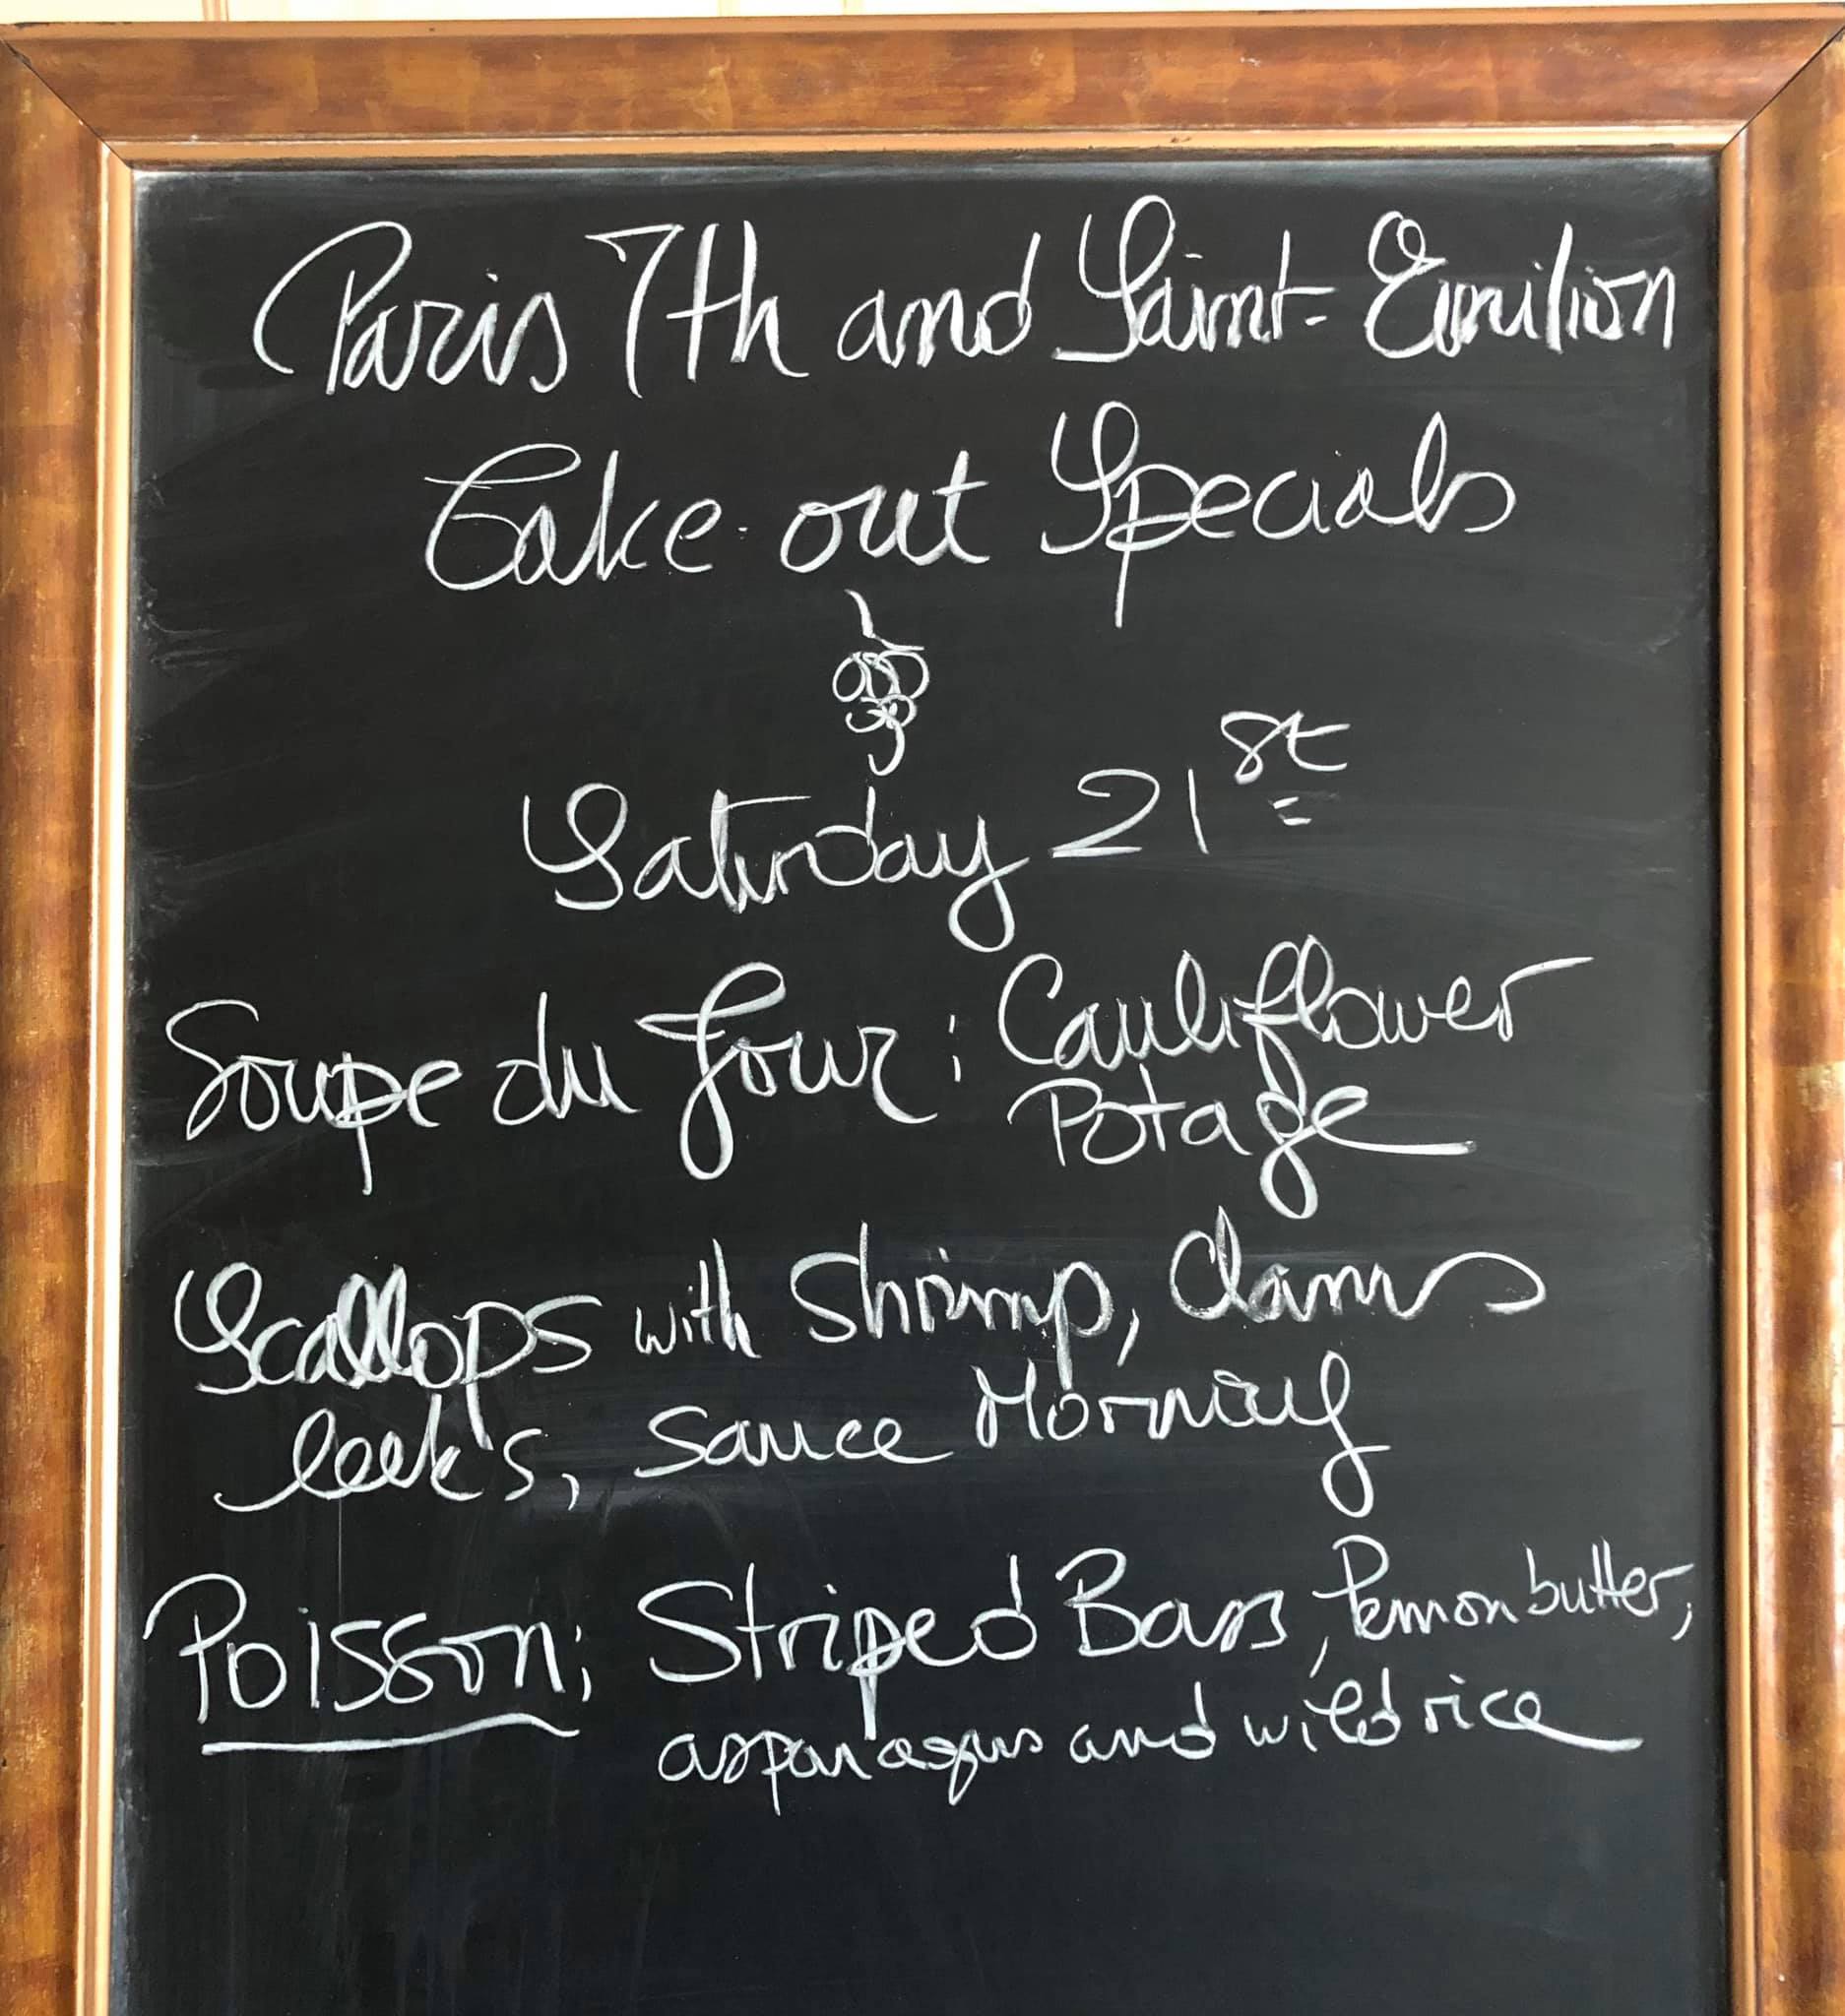 Paris 7th and Saint-Emilion
Take-out Specials
Saturday 21st
Soupe du Jour: Cauliflower
Potage
Scallops with Shrimp, Clams
leeks, Sauce Mornay
Poisson: Striped Bass, lemon butter,
asparagus and wild rice